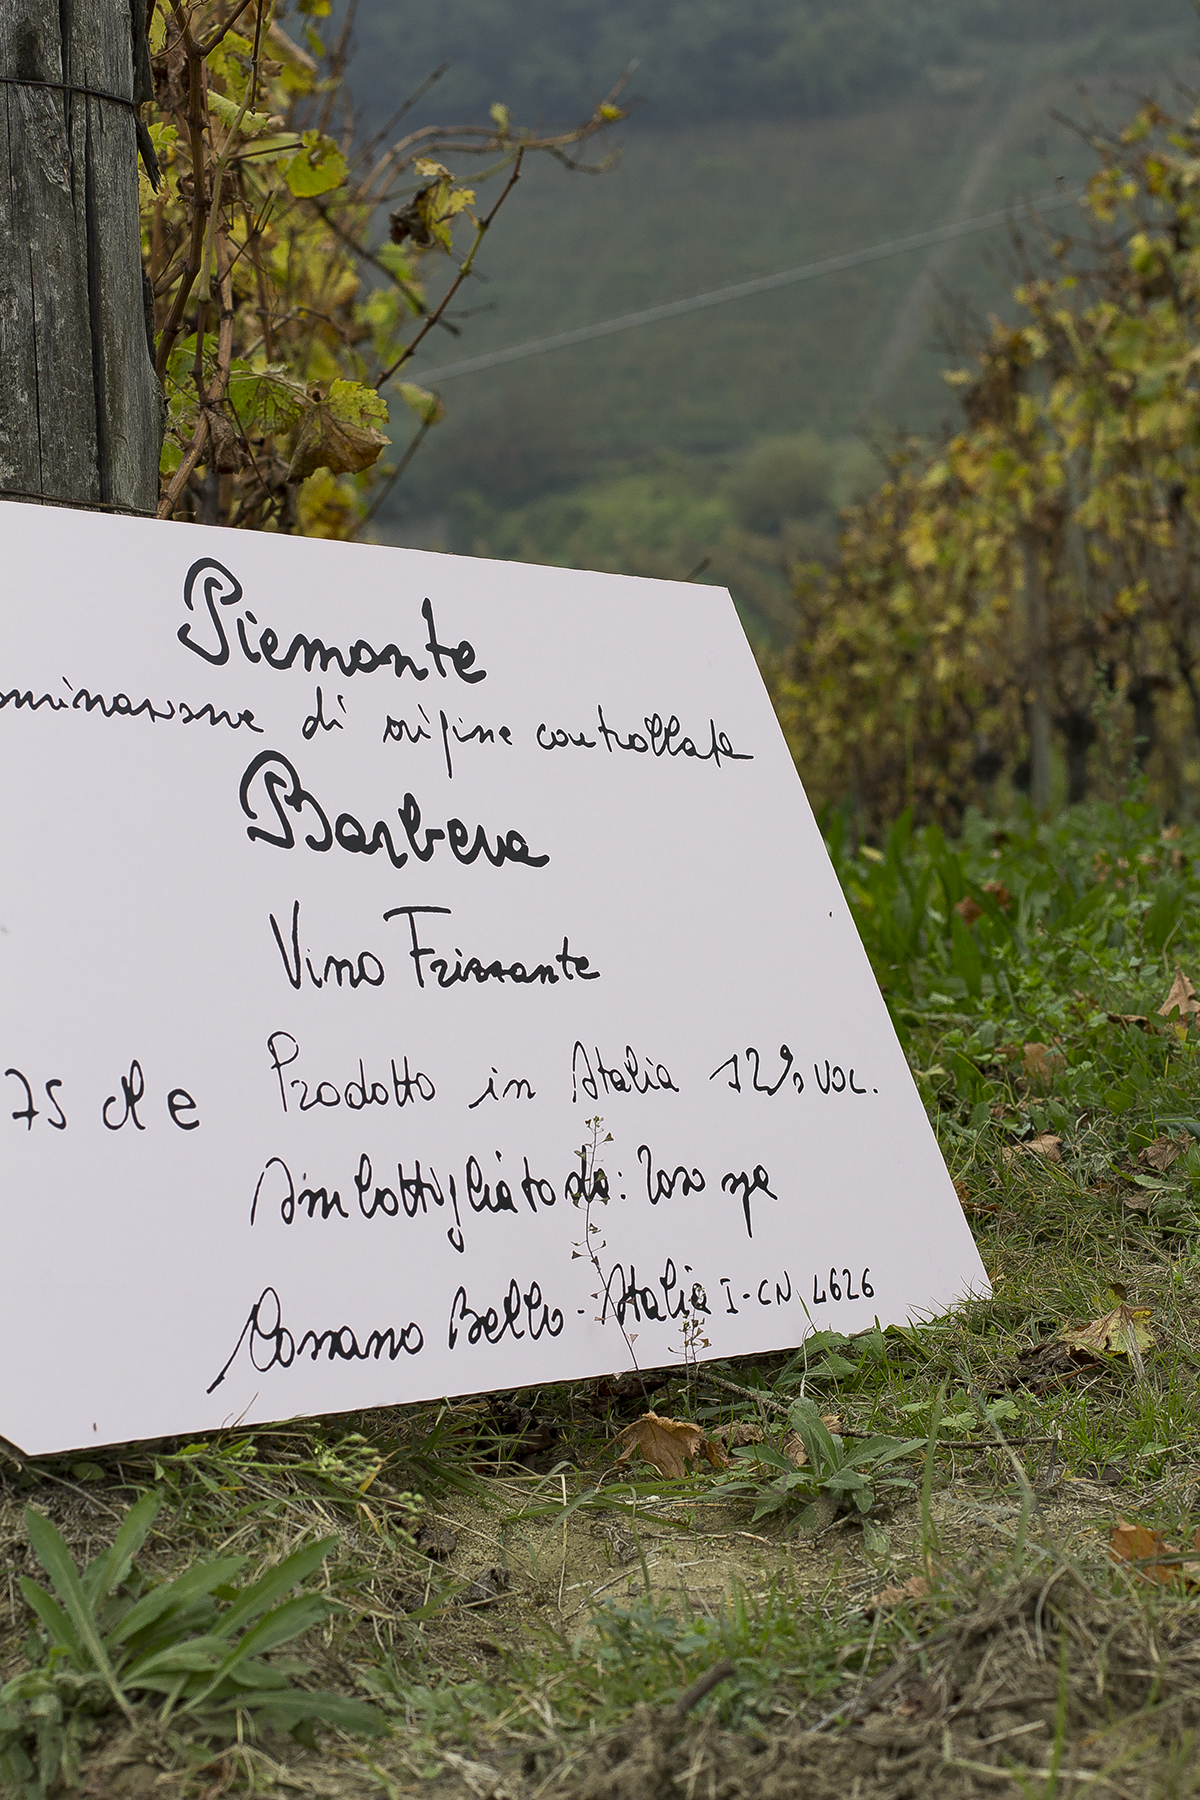 Piemonte
ominazione di origine controllata
Barbera
Vino Frizzante
75 cl e Prodotto in Italia 12% VOL.
Imbottigliato da:
Cossano Belbo - Italia I-CN 4626